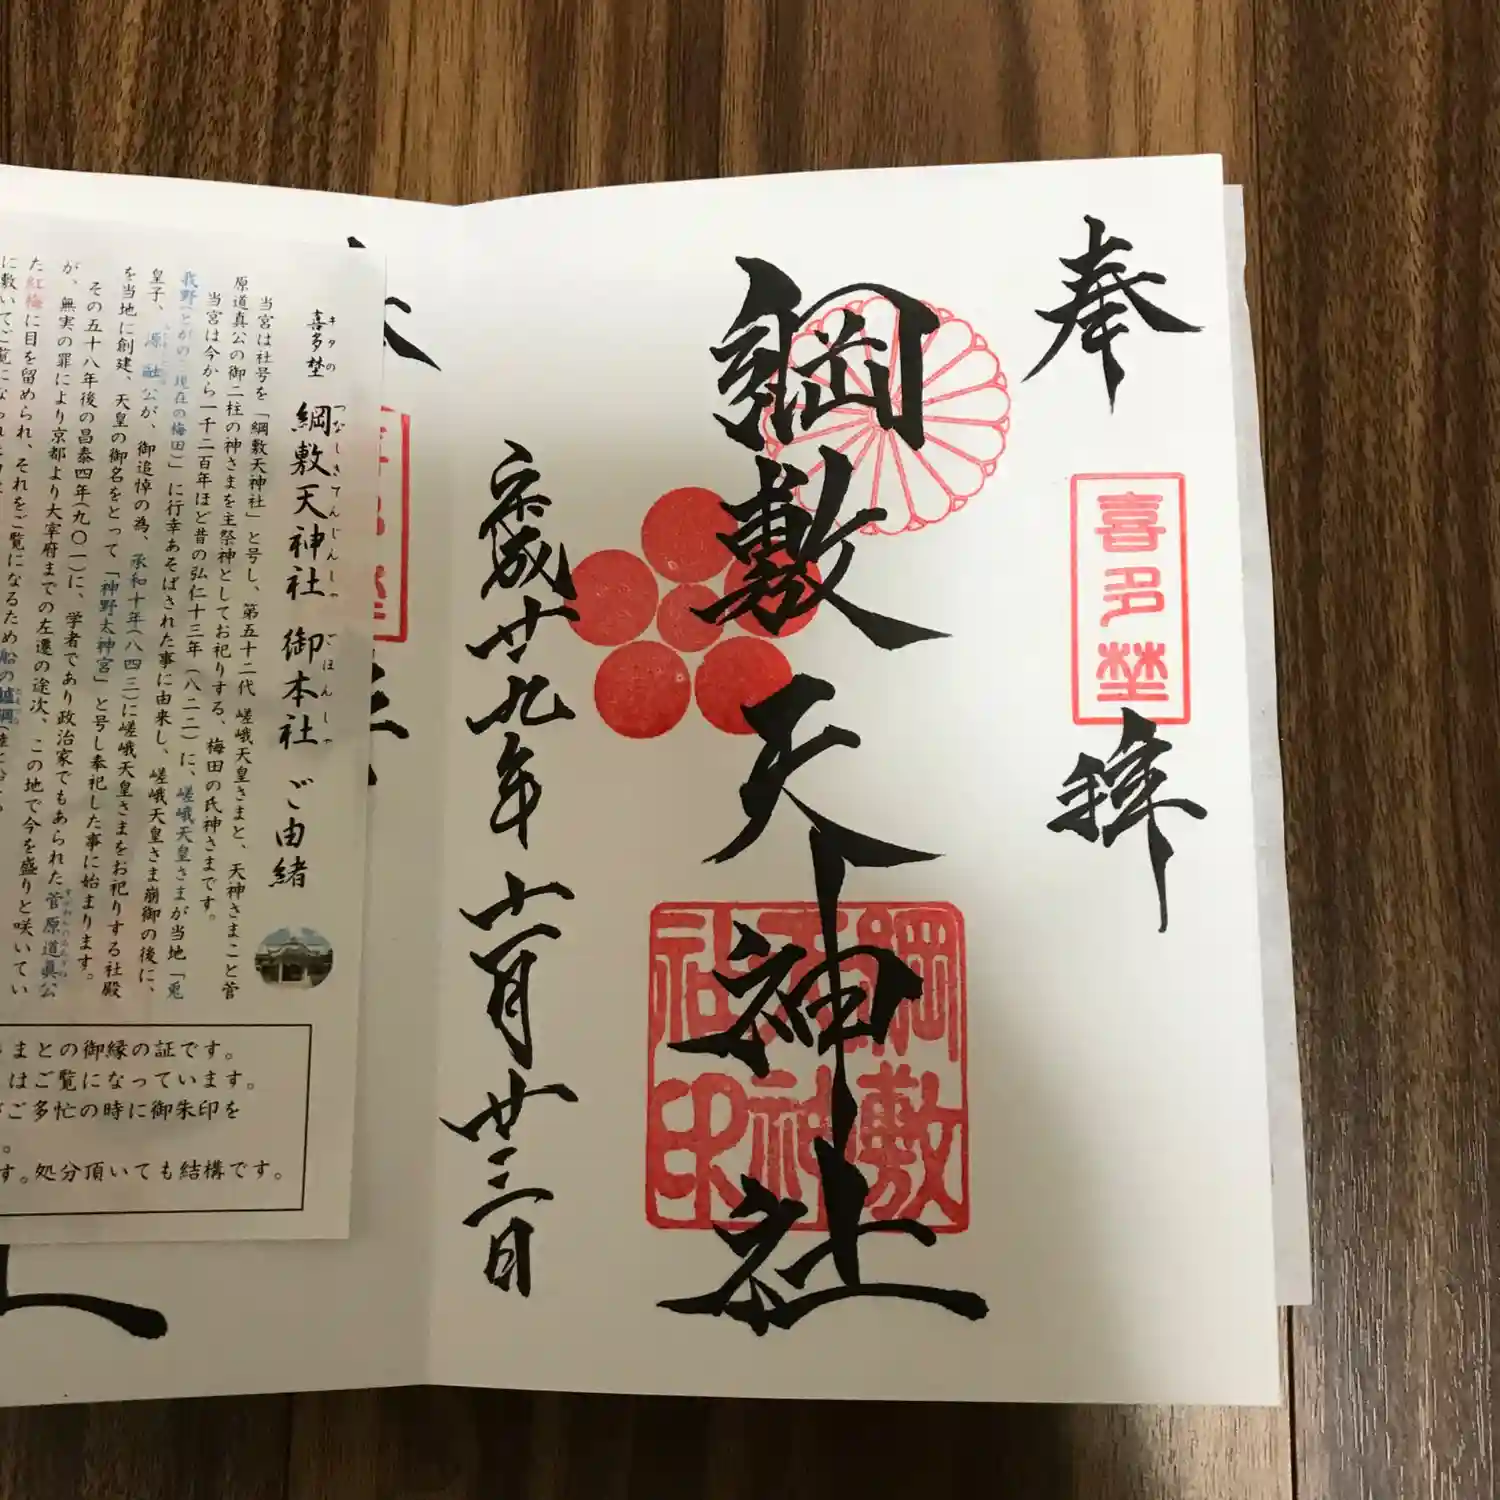 奉
喜多埜
拝
綱敷天神社
綱敷天神社印
平成廿九年十一月廿三日
喜多埜 綱敷天神社 御本社 ご由緒
キタの つなしきてんじんしゃ ごほんしゃ
当宮は社号を「綱敷天神社」と号し、第五十二代 嵯峨天皇さまと、天神さまこと菅
原道真公の御二柱の神さまを主祭神としてお祀りする、梅田の氏神さまです。
当宮は今から一千二百年ほど昔の弘仁十三年(八二二)に、嵯峨天皇さまが当地「兎
我野(とがの:現在の梅田)」に行幸あそばされた事に由来し、嵯峨天皇さま崩御の後に、
皇子、源融公が、御追悼の為、承和十年(八四三)に嵯峨天皇さまをお祀りする社殿
を当地に創建、天皇の御名をとって「神野太神宮」と号し奉祀した事に始まります。
その五十八年後の昌泰四年(九〇一)に、学者であり政治家でもあられた菅原道真公
が、無実の罪により京都より大宰府までの左遷の途次、この地で今を盛りと咲いてい
た紅梅に目を留められ、それをご覧になるため船の艫綱
に敷いてご覧になっ
まとの御縁の証です。
はご覧になっています。
ご多忙の時に御朱印を
。
す。処分頂いても結構です。